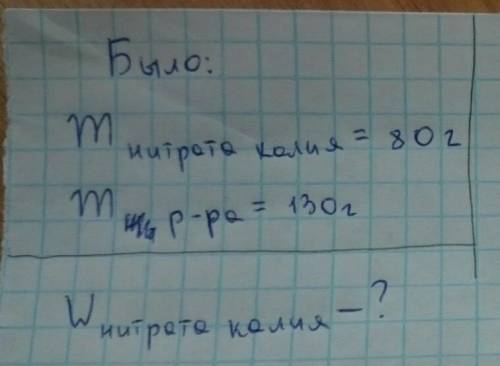 Было:
m нитрата калия = 80 г
m р-ра = 130 г
W нитрата калия - ?